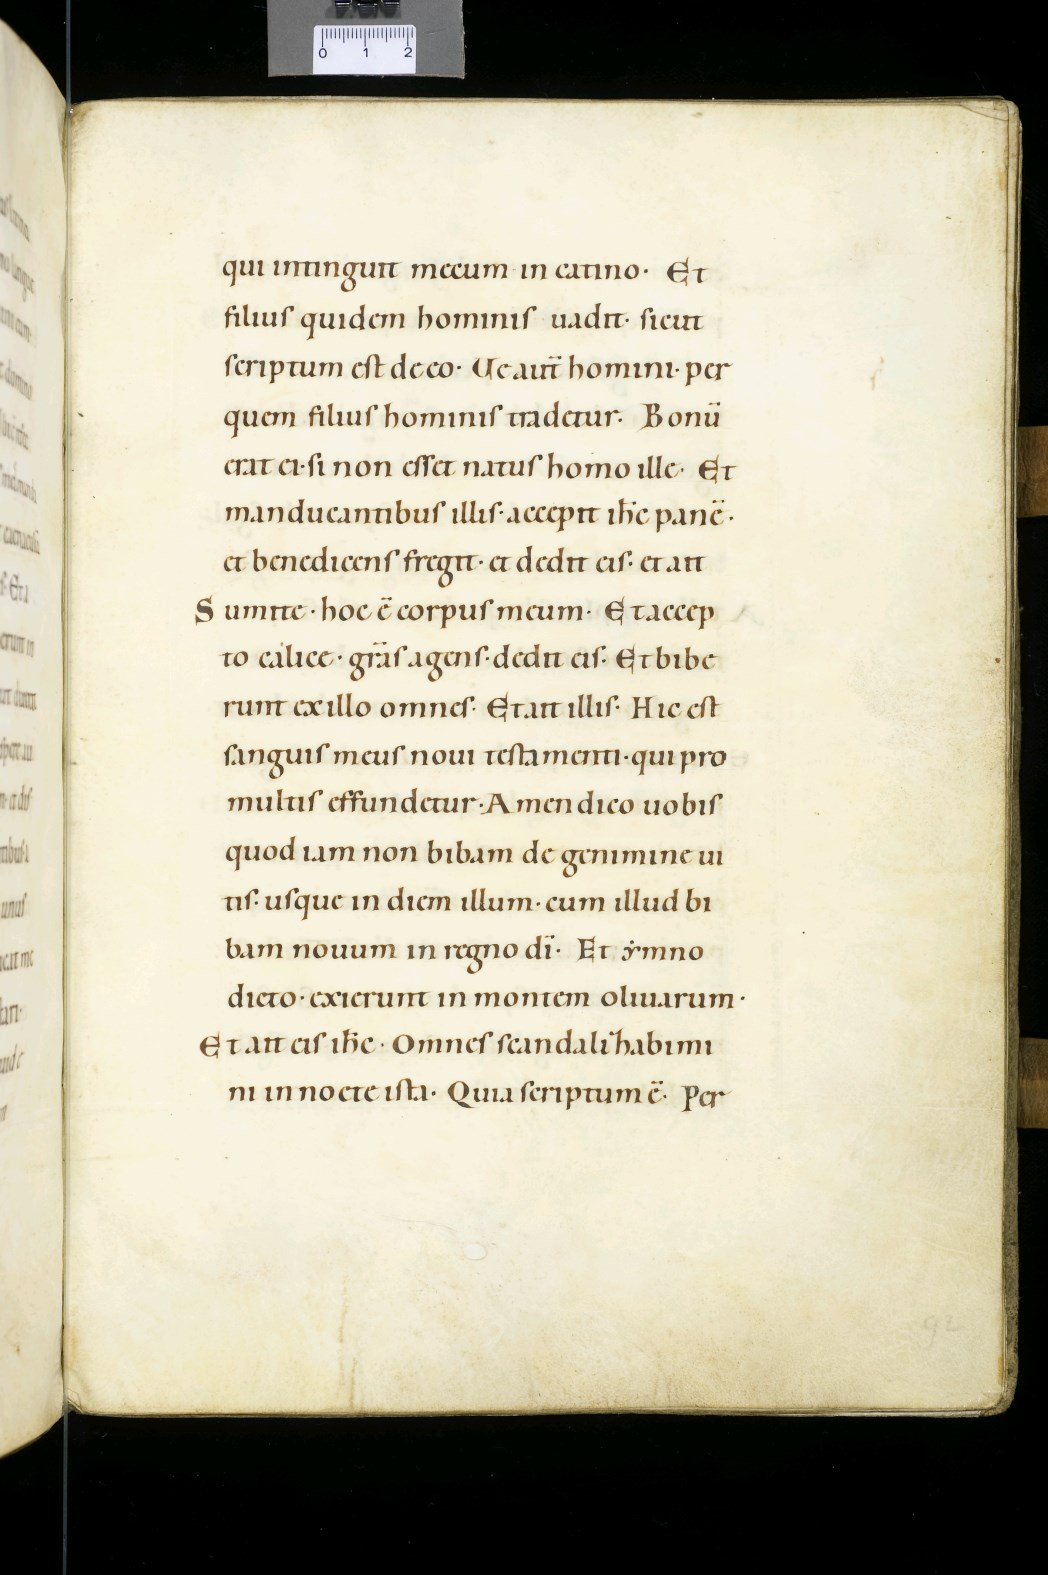 0 1 2
qui intinguit mecum in catino· Et
filius quidem hominis uadit· sicut
scriptum est de eo· Ue aut̄ homini· per
quem filius hominis tradetur· Bonū
erat ei· si non esset natus homo ille· Et
manducantibus illis· accepit ih̄c panē·
et benedicens fregit· et dedit eis· et ait
Sumite· hoc ē corpus meum· Et accep
to calice· grās agens· dedit eis· Et bibe
runt ex illo omnes· Et ait illis· Hic est
sanguis meus noui testamenti· qui pro
multis effundetur· Amen dico uobis
quod iam non bibam de genimine ui
tis· usque in diem illum· cum illud bi
bam nouum in regno dī· Et ẏmno
dicto· exierunt in montem oliuarum·
Et ait eis ih̄c· Omnes scandalihabimi
ni in nocte ista· Quia scriptum ē· Per
92